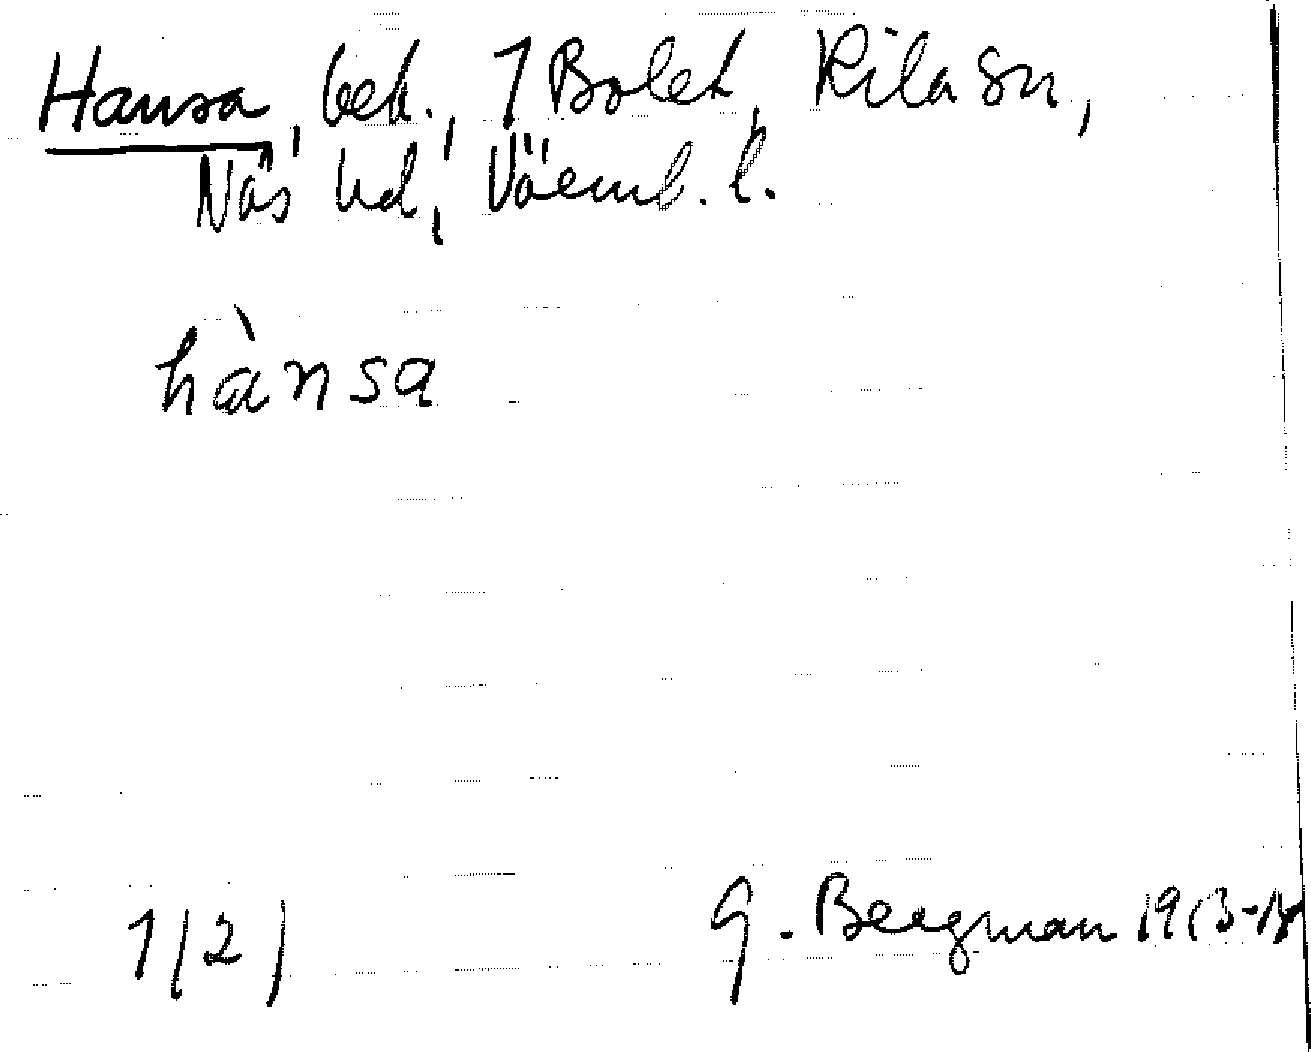 Hansa, beb., 1 Bolet, Rila sn,
Näs hd, Värml. l.
hànsa
1(2)
G. Bergman 1913-14